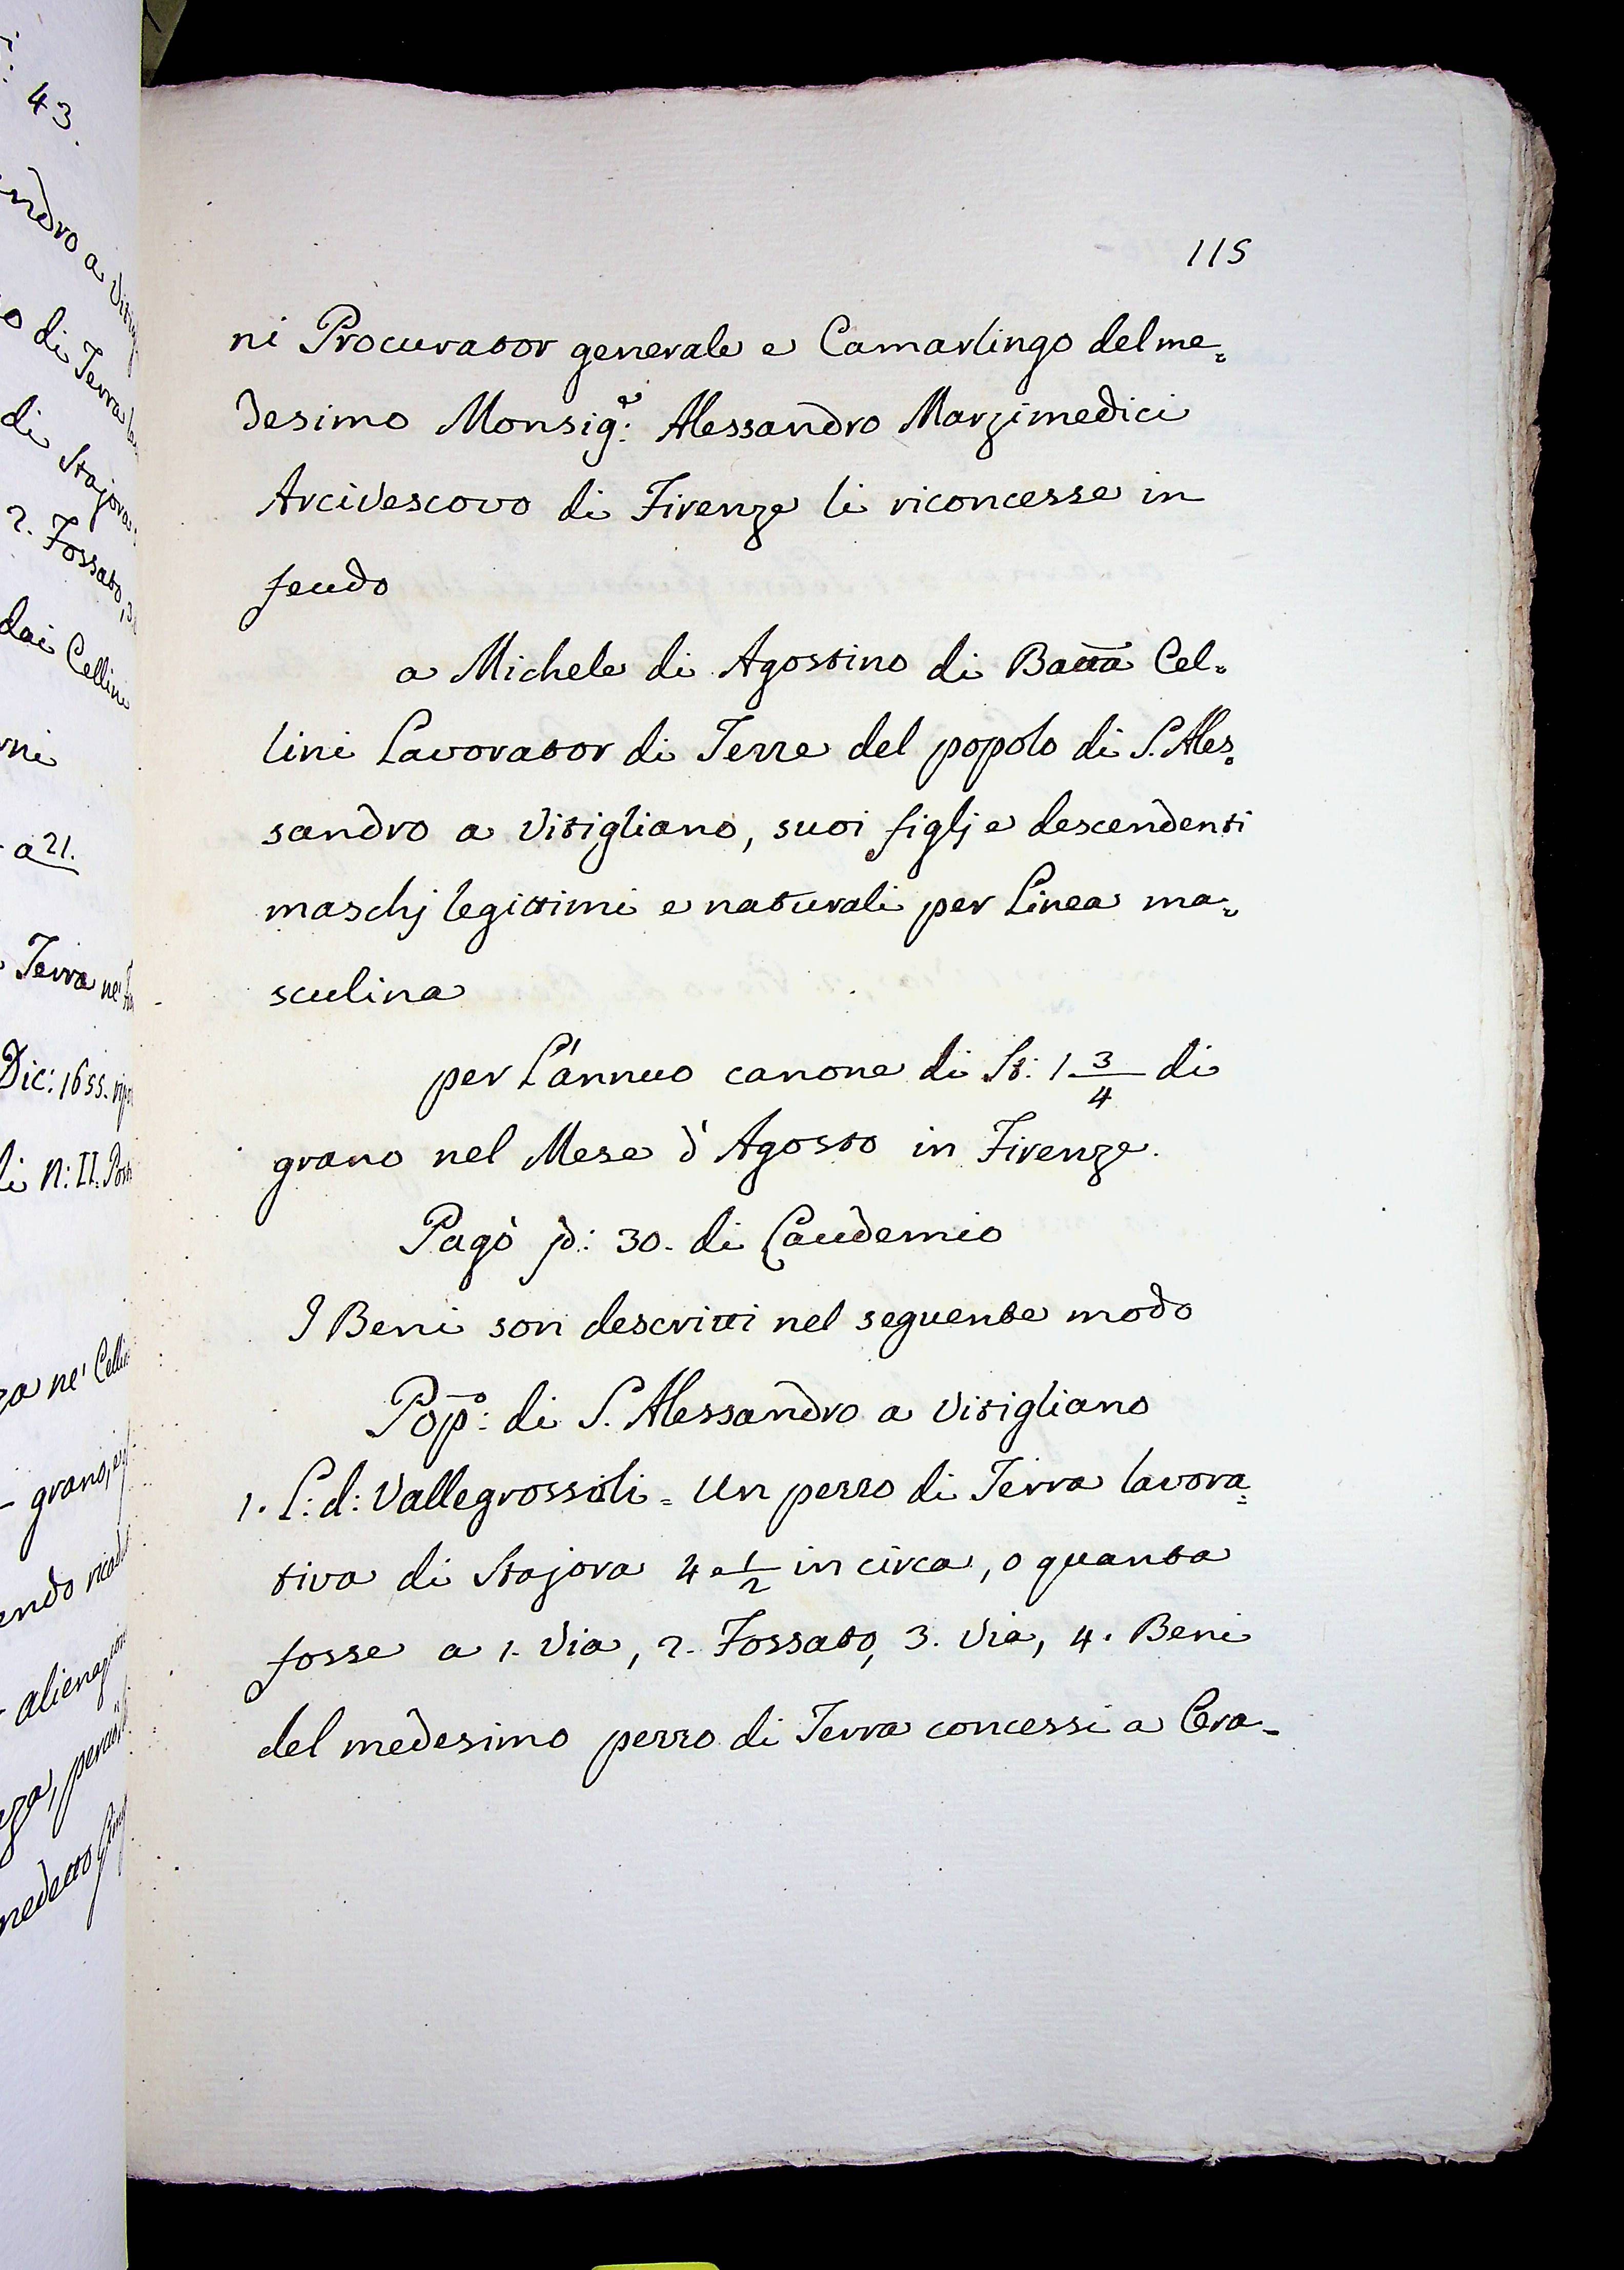 115
ni Procurator generale e Camarlingo del me=
desimo Monsig.r: Alessandro Marzimedici
Arcivescovo di Firenze li riconcesse in
feudo
a Michele di Agostino di Batta Cel=
lini Lavorator di Terre del popolo di S. Ales=
sandro a Vitigliano, suoi figlj e descendenti
maschj legittimi e naturali per Linea ma=
sculina
per L'annuo canone di St: 1 3/4 di
grano nel Mese d'Agosto in Firenze.
Pagò : 30. di Laudemio
I Beni son descritti nel seguente modo
Pop.o: di S. Alessandro a Vitigliano
1. L: d: Vallegrossoli = Un pezzo di Terra lavora=
tiva di Stajora 4 e 1/2 in circa, o quanta
fosse a 1. Via, 2. Fossato, 3. Via, 4. Beni
del medesimo pezzo di Terra concessi a Cera=
43.
di Terra
di Stajora
2. Fossato, 3
dai Cellini
a 21.
Terra ne'
Dic: 1655.
N: II.
ne'
grano,